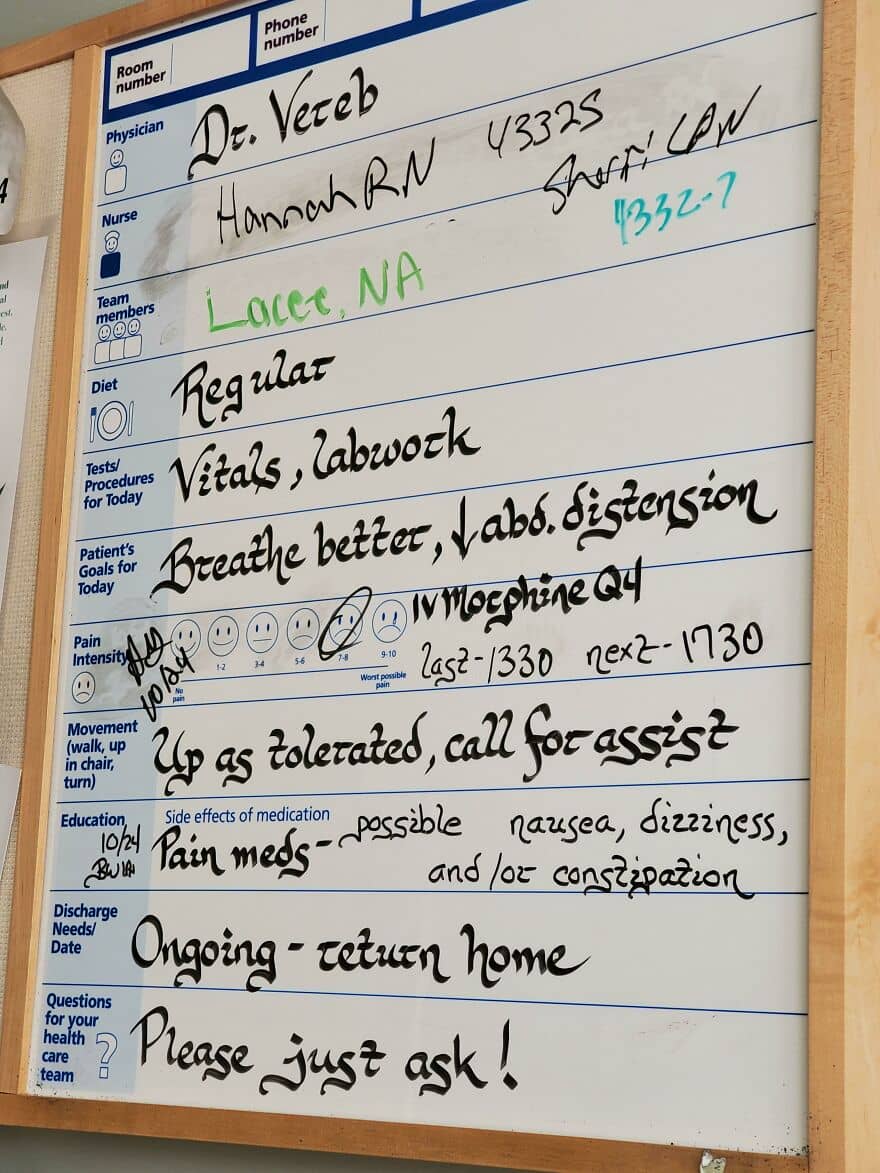 Room number
Phone number
Physician
Dr. Vereb
Nurse
Hannah RN 43325
Sherri LPN
4332-7
Team members
Lacee, NA
Diet
Regular
Tests/
Procedures
for Today
Vitals, labwork
Patient's
Goals for
Today
Breathe better, ↓ abd. distension
Pain
Intensity
10/24
No pain
1-2
3-4
5-6
7-8
9-10
Worst possible pain
IV Morphine Q4
last-1330 next-1730
Movement
(walk, up
in chair,
turn)
Up as tolerated, call for assist
Education
10/24
Side effects of medication
Pain meds - possible nausea, dizziness,
and/or constipation
Discharge
Needs/
Date
Ongoing - return home
Questions
for your
health
care
team
?
Please just ask!